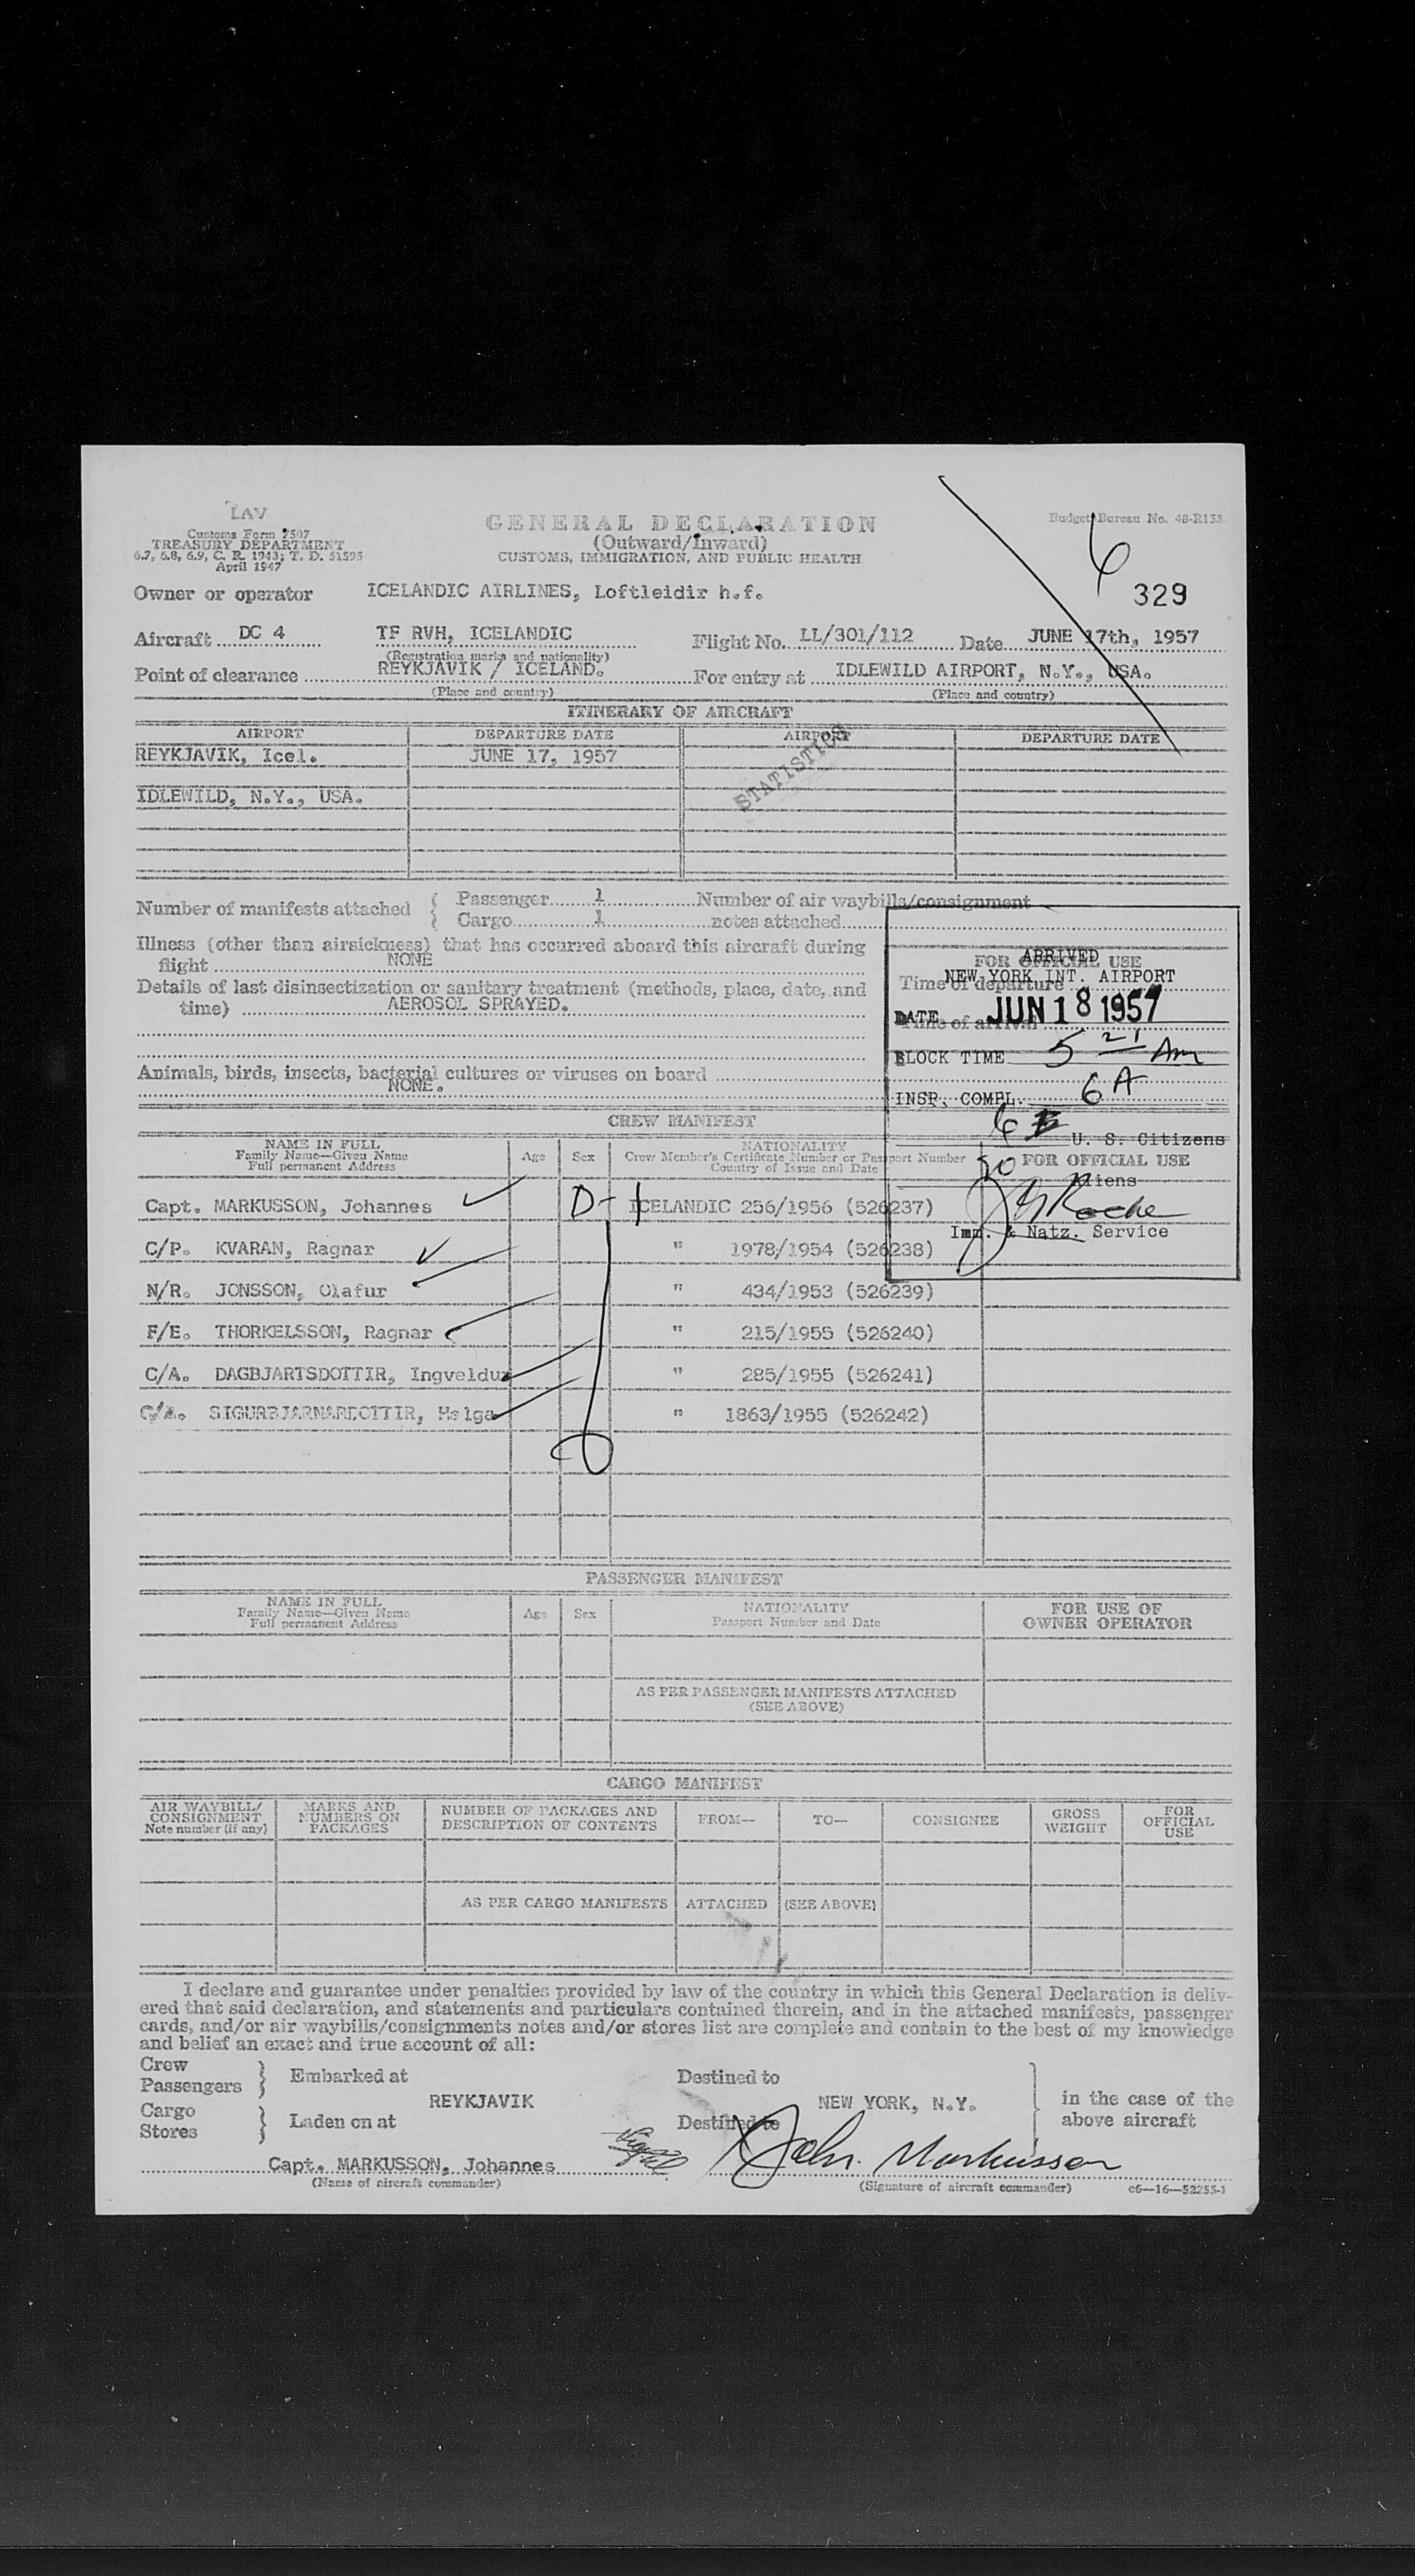 LAV
Customs Form 7507
TREASURY DEPARTMENT
6.7, 6.8, 6.9, C. R. 1943; T. D. 51595
April 1947
GENERAL DECLARATION
(Outward/Inward)
CUSTOMS, IMMIGRATION, AND PUBLIC HEALTH
Budget Bureau No. 48-R153
6
329
Owner or operator ICELANDIC AIRLINES, Loftleidir h.f.
Aircraft DC 4 TF RVH, ICELANDIC Flight No. LL/301/112 Date JUNE 17th, 1957
(Registration marks and nationality)
Point of clearance REYKJAVIK / ICELAND. For entry at IDLEWILD AIRPORT, N.Y., USA.
(Place and country) (Place and country)
ITINERARY OF AIRCRAFT
AIRPORT DEPARTURE DATE AIRPORT DEPARTURE DATE
REYKJAVIK, Icel. JUNE 17, 1957
STATISTICS
IDLEWILD, N.Y., USA.
Number of manifests attached { Passenger 1 Number of air waybills/consignment
Cargo 1 notes attached
Illness (other than airsickness) that has occurred aboard this aircraft during
flight NONE
Details of last disinsectization or sanitary treatment (methods, place, date, and
time) AEROSOL SPRAYED.
Animals, birds, insects, bacterial cultures or viruses on board
NONE.
FOR OFFICIAL USE
ARRIVED
Time of departure
NEW YORK INT. AIRPORT
Time of arrival
DATE JUN 18 1957
BLOCK TIME 5 21 Am
INSP. COMPL. 6 A
6 U. S. Citizens
FOR OFFICIAL USE
Aliens
Imm. & Natz. Service
CREW MANIFEST
NAME IN FULL
Family Name—Given Name
Full permanent Address
Age Sex
NATIONALITY
Crew Member's Certificate Number or Passport Number
Country of Issue and Date
Capt. MARKUSSON, Johannes D-1 ICELANDIC 256/1956 (526237)
C/P. KVARAN, Ragnar " 1978/1954 (526238)
N/R. JONSSON, Olafur " 434/1953 (526239)
F/E. THORKELSSON, Ragnar " 215/1955 (526240)
C/A. DAGBJARTSDOTTIR, Ingveldur " 285/1955 (526241)
C/A. SIGURBJARNARDOTTIR, Helga " 1863/1955 (526242)
PASSENGER MANIFEST
NAME IN FULL
Family Name—Given Name
Full permanent Address
Age Sex
NATIONALITY
Passport Number and Date
FOR USE OF
OWNER OPERATOR
AS PER PASSENGER MANIFESTS ATTACHED
(SEE ABOVE)
CARGO MANIFEST
AIR WAYBILL/
CONSIGNMENT
Note number (if any)
MARKS AND
NUMBERS ON
PACKAGES
NUMBER OF PACKAGES AND
DESCRIPTION OF CONTENTS
FROM— TO— CONSIGNEE
GROSS
WEIGHT
FOR
OFFICIAL
USE
AS PER CARGO MANIFESTS ATTACHED (SEE ABOVE)
I declare and guarantee under penalties provided by law of the country in which this General Declaration is deliv-
ered that said declaration, and statements and particulars contained therein, and in the attached manifests, passenger
cards, and/or air waybills/consignments notes and/or stores list are complete and contain to the best of my knowledge
and belief an exact and true account of all:
Crew
Passengers } Embarked at Destined to
REYKJAVIK NEW YORK, N.Y. } in the case of the
above aircraft
Cargo
Stores } Laden on at Destined to
Capt. MARKUSSON, Johannes Joh. Markusson
(Name of aircraft commander) (Signature of aircraft commander) c6—16—52255-1